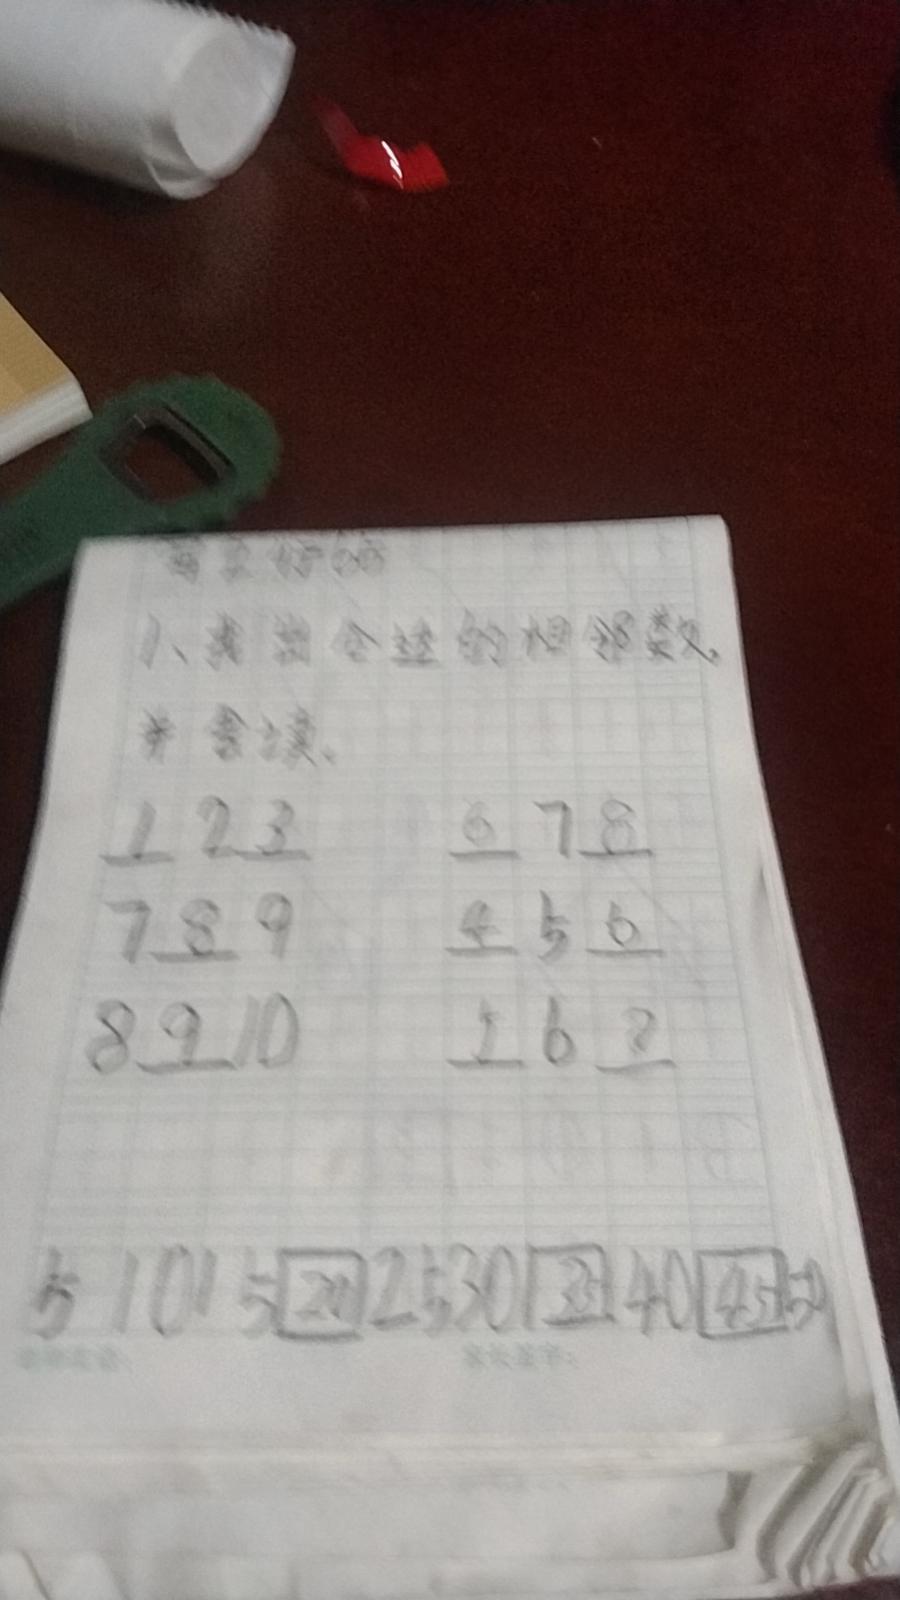 1、找出合适的相邻数。
并会填、
1 2 3 6 7 8
7 8 9 4 5 6
8 9 10 5 6 7
5 10 15 20 25 30 35 40 45 50
家长签字: